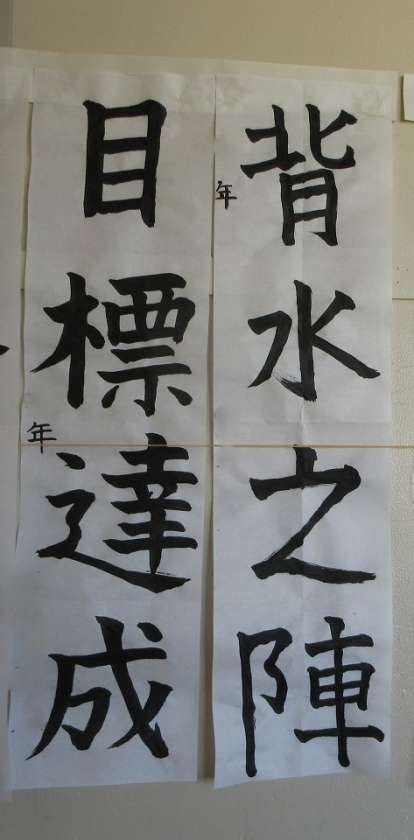 背水之陣
年
目標達成
年